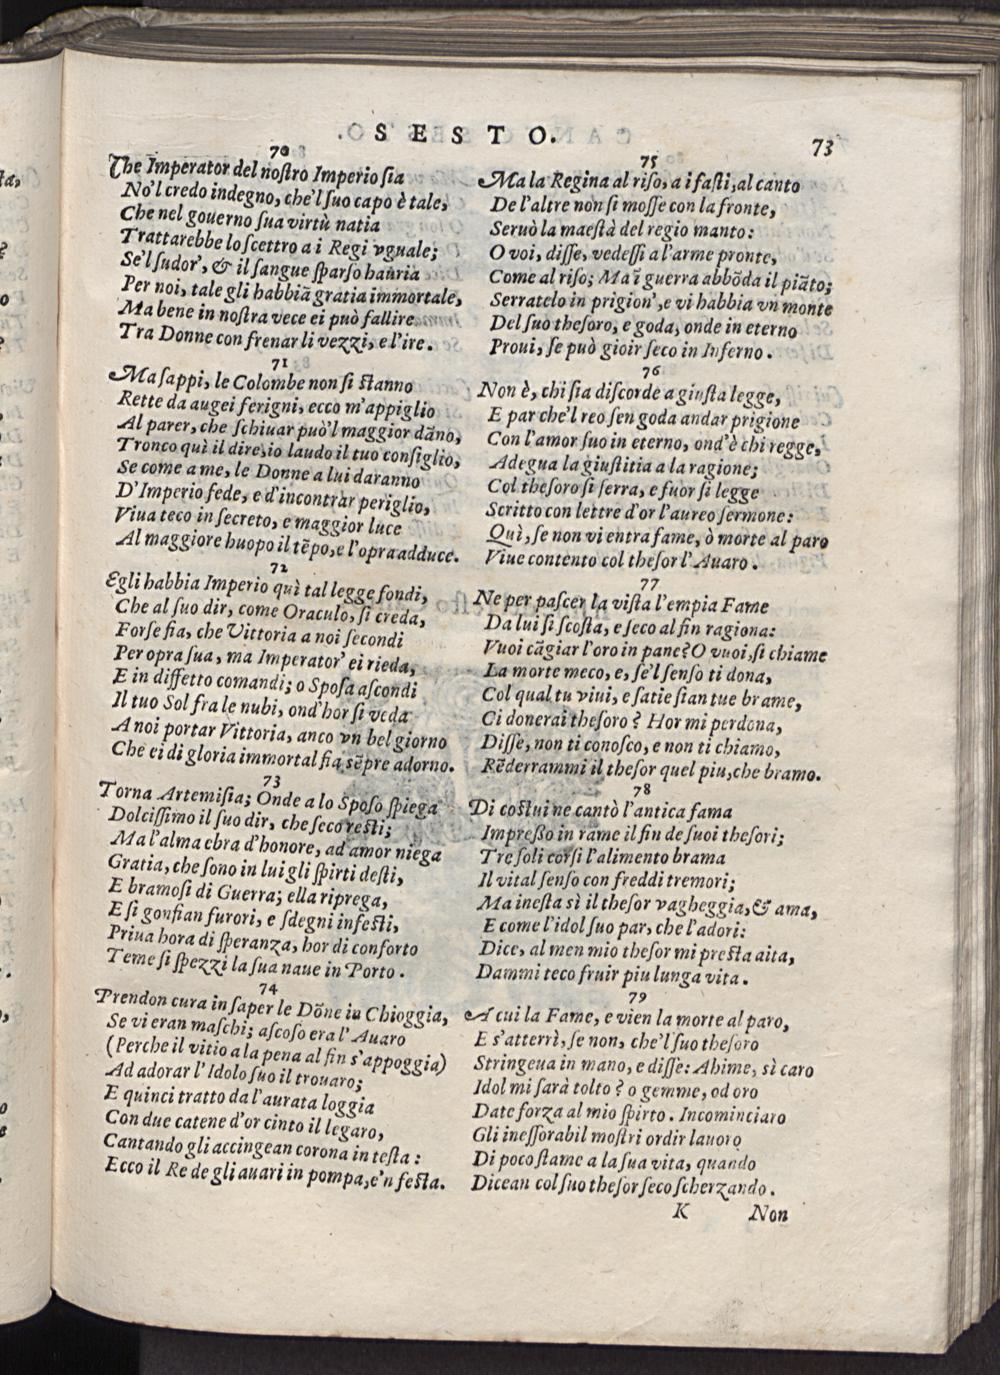 SESTO.
73
70
Che Imperator del nostro Imperio sia
No'l credo indegno, che'l suo capo è tale,
Che nel gouerno sua virtù natia
Trattarebbe lo scettro a i Regi vguale;
Se'l sudor', & il sangue sparso hauria
Per noi, tale gli habbiã gratia immortale,
Ma bene in nostra vece ei può fallire
Tra Donne con frenar li vezzi, e l'ire.
71
Ma sappi, le Colombe non si stanno
Rette da augei ferigni, ecco m'appiglio
Al parer, che schiuar può'l maggior dãno,
Tronco quì il dire, io laudo il tuo consiglio,
Se come a me, le Donne a lui daranno
D'Imperio fede, e d'incontrar periglio,
Viua teco in secreto, e maggior luce
Al maggiore huopo il tẽpo, e l'opra adduce.
72
Egli habbia Imperio quì tal legge fondi,
Che al suo dir, come Oraculo, si creda,
Forse fia, che Vittoria a noi secondi
Per opra sua, ma Imperator' ei rieda,
E in diffetto comandi; o Sposa ascondi
Il tuo Sol fra le nubi, ond'hor si veda
A noi portar Vittoria, anco vn bel giorno
Che ei di gloria immortal fia sẽpre adorno.
73
Torna Artemisia; Onde a lo Sposo spiega
Dolcissimo il suo dir, che seco resti;
Ma l'alma ebra d'honore, ad amor niega
Gratia, che sono in lui gli spirti desti,
E bramosi di Guerra; ella riprega,
E si gonfian furori, e sdegni infesti,
Priua hora di speranza, hor di conforto
Teme si spezzi la sua naue in Porto.
74
Prendon cura in saper le Dõne in Chioggia,
Se vi eran maschi; ascoso era l'Auaro
(Perche il vitio a la pena al fin s'appoggia)
Ad adorar l'Idolo suo il trouaro;
E quinci tratto da l'aurata loggia
Con due catene d'or cinto il legaro,
Cantando gli accingean corona in testa:
Ecco il Re de gli auari in pompa, e'n festa.
75
Ma la Regina al riso, a i fasti, al canto
De l'altre non si mosse con la fronte,
Seruò la maestà del regio manto:
O voi, disse, vedessi a l'arme pronte,
Come al riso; Ma ĩ guerra abbõda il piãto;
Serratelo in prigion', e vi habbia vn monte
Del suo thesoro, e goda, onde in eterno
Proui, se può gioir seco in Inferno.
76
Non è, chi sia discorde a giusta legge,
E par che'l reo sen goda andar prigione
Con l'amor suo in eterno, ond'è chi regge,
Adegua la giustitia a la ragione;
Col thesoro si serra, e fuor si legge
Scritto con lettre d'or l'aureo sermone:
Quì, se non vi entra fame, ò morte al paro
Viue contento col thesor l'Auaro.
77
Ne per pascer la vista l'empia Fame
Da lui si scosta, e seco al fin ragiona:
Vuoi cãgiar l'oro in pane? O vuoi, si chiame
La morte meco, e, se'l senso ti dona,
Col qual tu viui, e satie sian tue brame,
Ci donerai thesoro? Hor mi perdona,
Disse, non ti conosco, e non ti chiamo,
Rẽderrammi il thesor quel piu, che bramo.
78
Di costui ne cantò l'antica fama
Impresso in rame il fin de suoi thesori;
Tre soli corsi l'alimento brama
Il vital senso con freddi tremori;
Ma inesta sì il thesor vagheggia, & ama,
E come l'idol suo par, che l'adori:
Dice, al men mio thesor mi presta aita,
Dammi teco fruir piu lunga vita.
79
A cui la Fame, e vien la morte al paro,
E s'atterrì, se non, che'l suo thesoro
Stringeua in mano, e disse: Ahime, sì caro
Idol mi sarà tolto? o gemme, od oro
Date forza al mio spirto. Incominciaro
Gli inessorabil mostri ordir lauoro
Di poco stame a la sua vita, quando
Dicean col suo thesor seco scherzando.
K Non